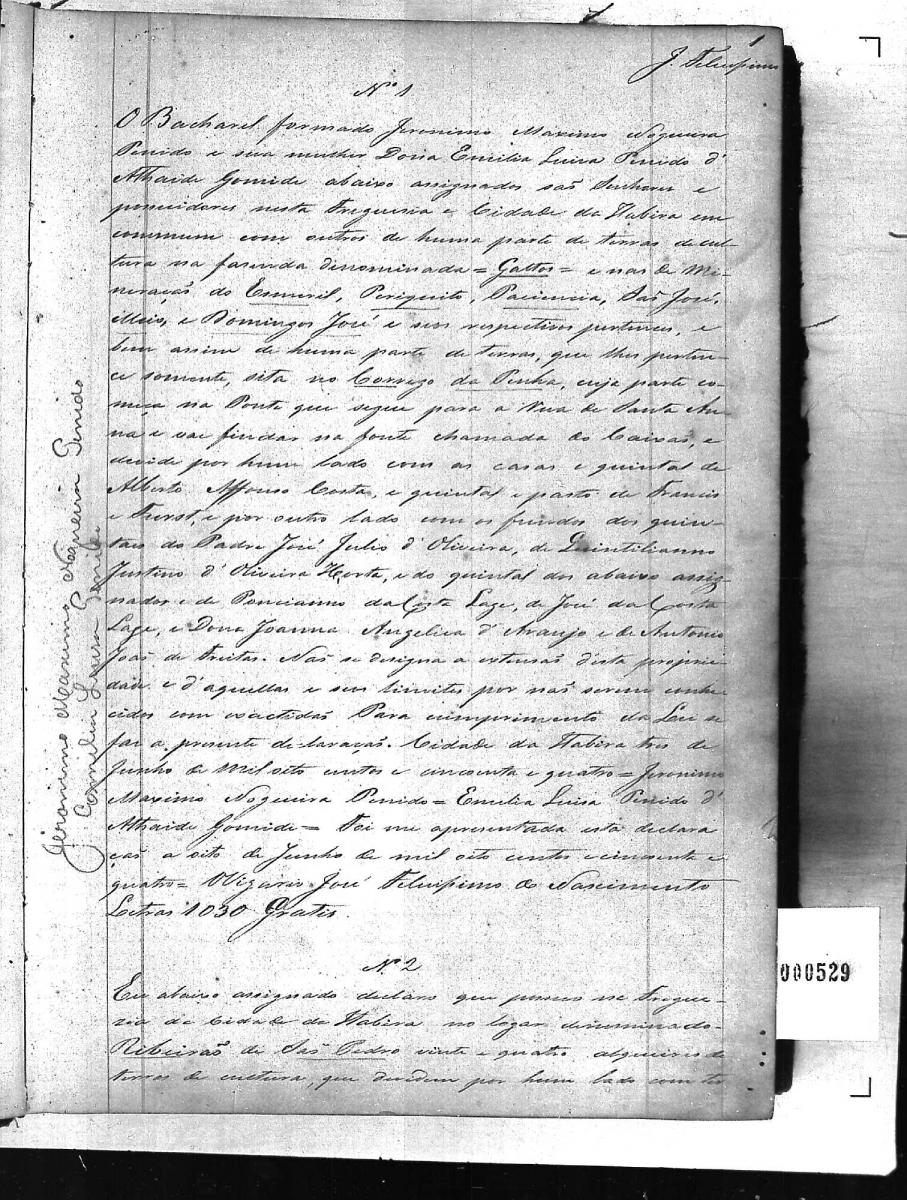 1
J. Felicissimo
Nº 1
O Bacharel formado Jeronimo Maximo Nogueira
Penido e sua mulher Dona Emilia Luisa Penido d'
Athaide Gomide abaixo assignados saõ Senhores e
possuidores nesta Freguesia e Cidade da Itabira em
commum com outros de huma parte de terras de cul-
tura na fasenda dinominada = Gattos = e nas de Mi-
neraçaõ do Esmeril, Periquito, Paciencia, Saõ José,
Meio, e Domingos José e seus respectivos pertences, e
bem assim de huma parte de terras, que lhes perten-
ce somente, sita no Corrego da Penha, cuja parte co-
meça na Ponte que segue para a Rua de Santa An-
na e vae findar na fonte chamada do Caixaõ, e
devide por hum lado com as casas e quintal de
Alberto Affonso Costa, e quintal e pasto de Francis
e por outro lado com os fundos dos quin-
taes do Padre José Julio d'Oliveira, de Quintilianno
Justino d'Oliveira Horta, e do quintal dos abaixo assig-
nados e de Poncianno da Costa Lage, de José da Costa
Lage, e Dona Joanna Angelica d'Araujo e de Antonio
Joaõ de Freitas. Naõ se designa a extensaõ d'esta proprie-
dade e d'aquellas e seus limites por naõ serem conhe-
cidos com exactidaõ Para cumprimento da Lei se
faz a presente declaraçaõ. Cidade da Itabira tres de
Junho de Mil oito centos e cincoenta e quatro = Jeronimo
Maximo Nogueira Penido = Emilia Luisa Penido d'
Athaide Gomide = Foi me apresentada esta declara
çaõ a oito de Junho de mil oito centos e cincoenta e
quatro = O Vigario José Felicissimo do Nascimento
Letras 1030 Gratis.
Jeronimo Maximo Nogueira Penido
Emilia Luisa
Nº 2
Eu abaixo assignado declaro que possuo na Fregue-
zia da Cidade da Itabira no logar dinominado
Ribeiraõ de Saõ Pedro vinte e quatro alqueires de
terras de cultura, que devidem por hum lado com ter
000529